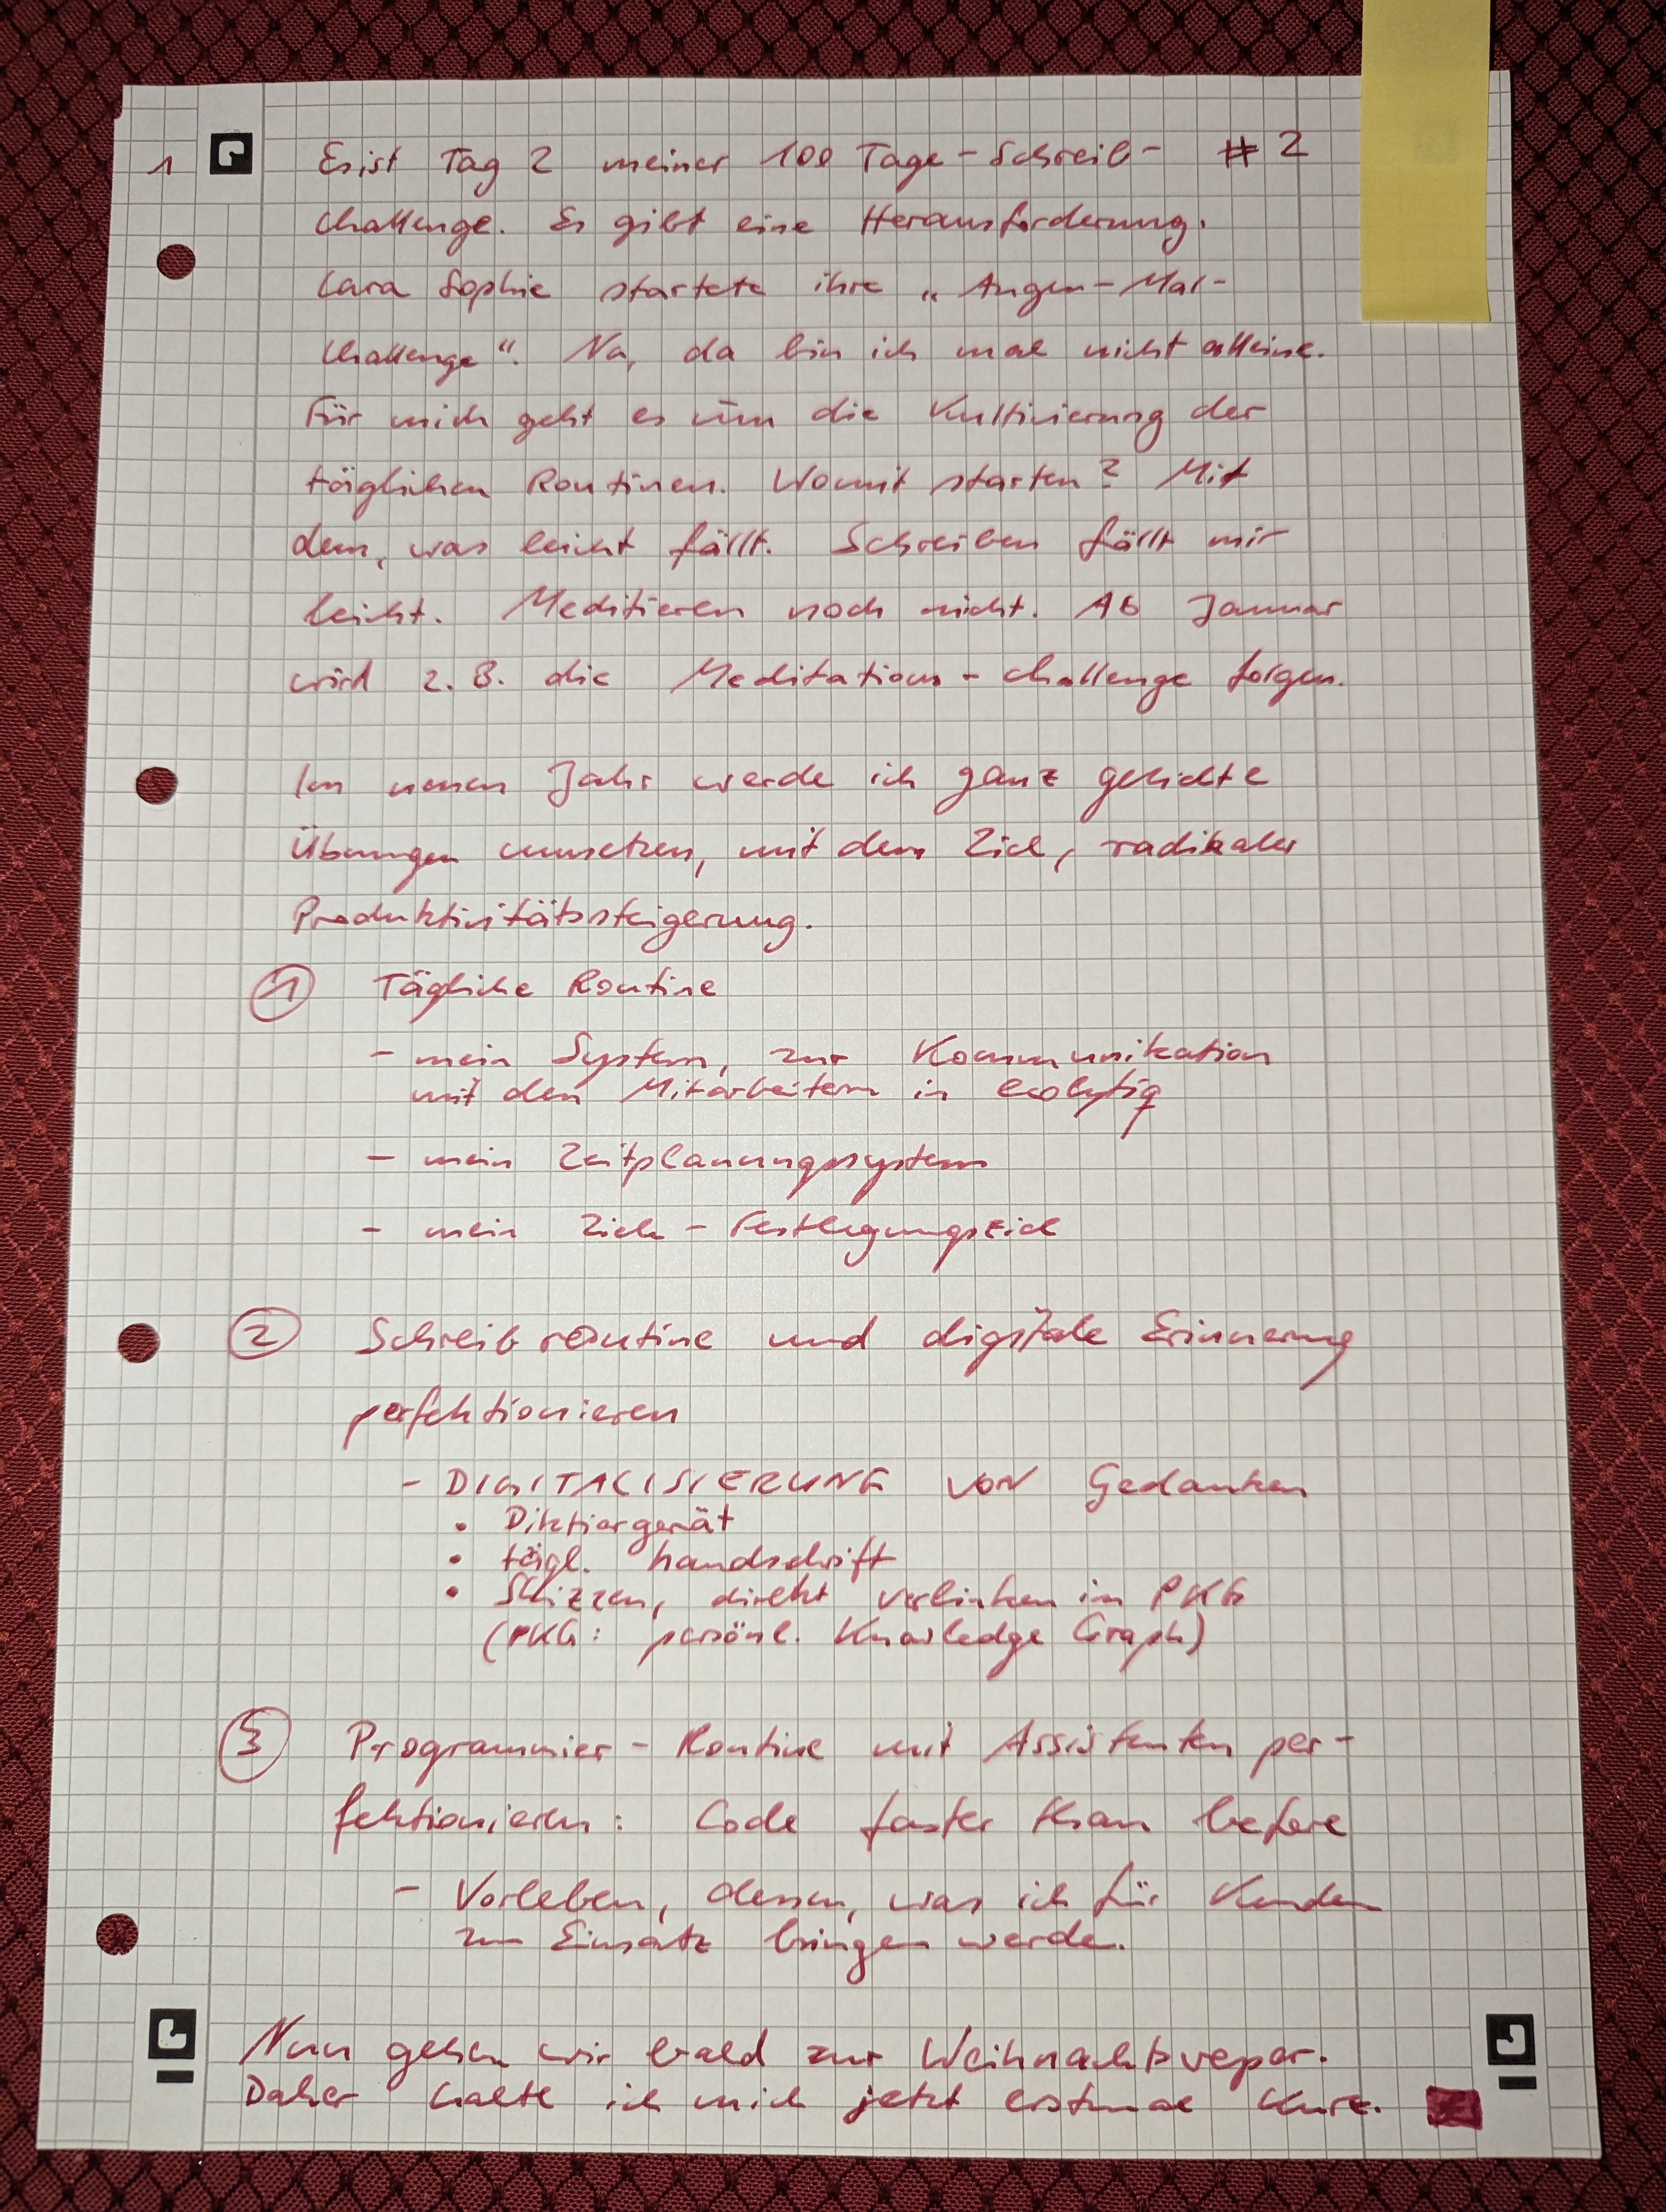 1 Es ist Tag 2 meiner 100 Tage-Schreib- #2
Challenge. Es gibt eine Herausforderung.
Lara Sophie startete ihre „Augen-Mal-
Challenge“. Na, da bin ich mal nicht alleine.
Für mich geht es um die Kultivierung der
täglichen Routinen. Womit starten? Mit
dem, was leicht fällt. Schreiben fällt mir
leicht. Meditieren noch nicht. Ab Januar
wird z.B. die Meditations-Challenge folgen.
Im neuen Jahr werde ich ganz gezielte
Übungen umsetzen, mit dem Ziel, radikaler
Produktivitätssteigerung.
1 Tägliche Routine
- mein System, zur Kommunikation
mit den Mitarbeitern in ecolytiq
- mein Zeitplanungssystem
- mein Ziele-Festlegungsziel
2 Schreibroutine und digitale Erinnerung
perfektionieren
- DIGITALISIERUNG VON Gedanken
• Diktiergerät
• tägl. Handschrift
• Skizzen, direkt verlinken im PKG
(PKG: persönl. Knowledge Graph)
3 Programmier-Routine mit Assistenten per-
fektionieren: Code faster than before
- Vorleben, dessen, was ich für Kunden
zum Einsatz bringen werde.
Nun gehen wir bald zur Weihnachtsvesper.
Daher halte ich mich jetzt erstmal kurz.